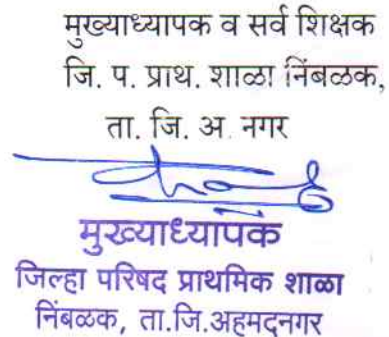 मुख्याध्यापक व सर्व शिक्षक
जि. प. प्राथ. शाळा निंबळक,
ता. जि. अ. नगर
मुख्याध्यापक
जिल्हा परिषद प्राथमिक शाळा
निंबळक, ता.जि.अहमदनगर